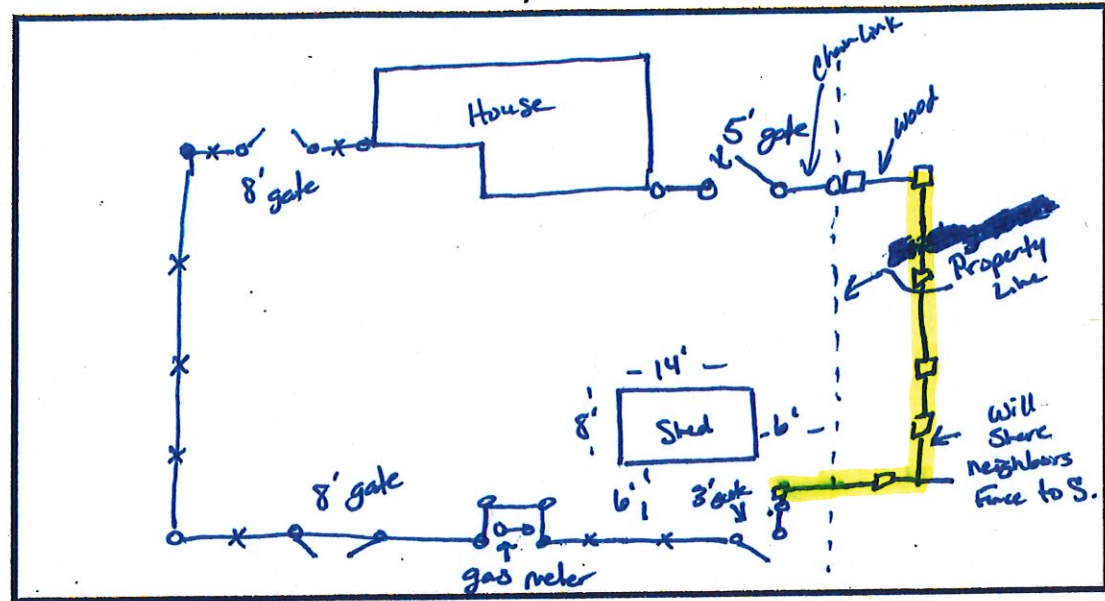 Chain Link
House
5' gate
Wood
8' gate
Property
Line
- 14' -
8'
Shed
- 6' -
Will
Share
neighbors
Fence to S.
8' gate
6'
3' gate
gas meter